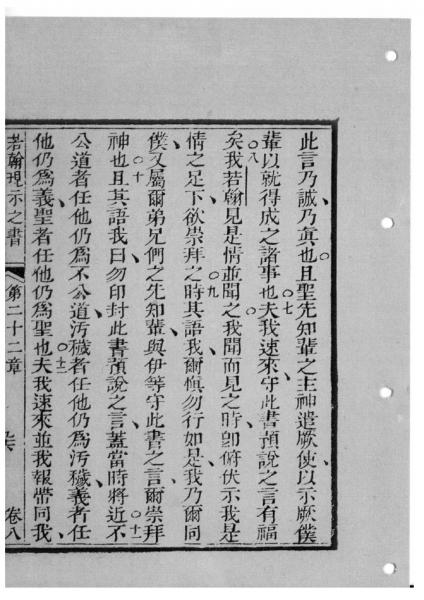 此言乃誠乃眞也且聖先知輩之主神遣厥使以示厥僕
輩以就得成之諸事也○七夫我速來守此書預說之言有福
矣○八我若翰見是情並聞之我聞而見之時卽俯伏示我是
情之足下欲崇拜之時○九其語我爾愼勿行如是我乃爾同
僕又屬爾弟兄們之先知輩與伊等守此書之言爾崇拜
神也○十且其語我曰勿印封此書預說之言蓋當時將近○十一不
公道者任他仍爲不公道污穢者任他仍爲污穢義者任
他仍爲義聖者任他仍爲聖也○十二夫我速來並我報帶同我
若翰現示之書 第二十二章 卷八